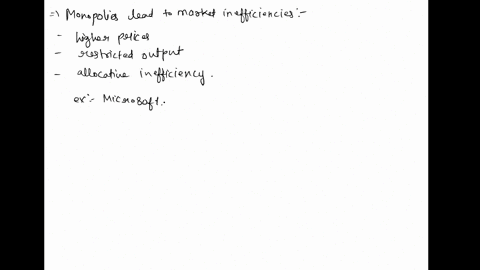 => Monopolies lead to market inefficiencies:-
- higher prices
- restricted output
- allocative inefficiency.
ex:- Microsoft.